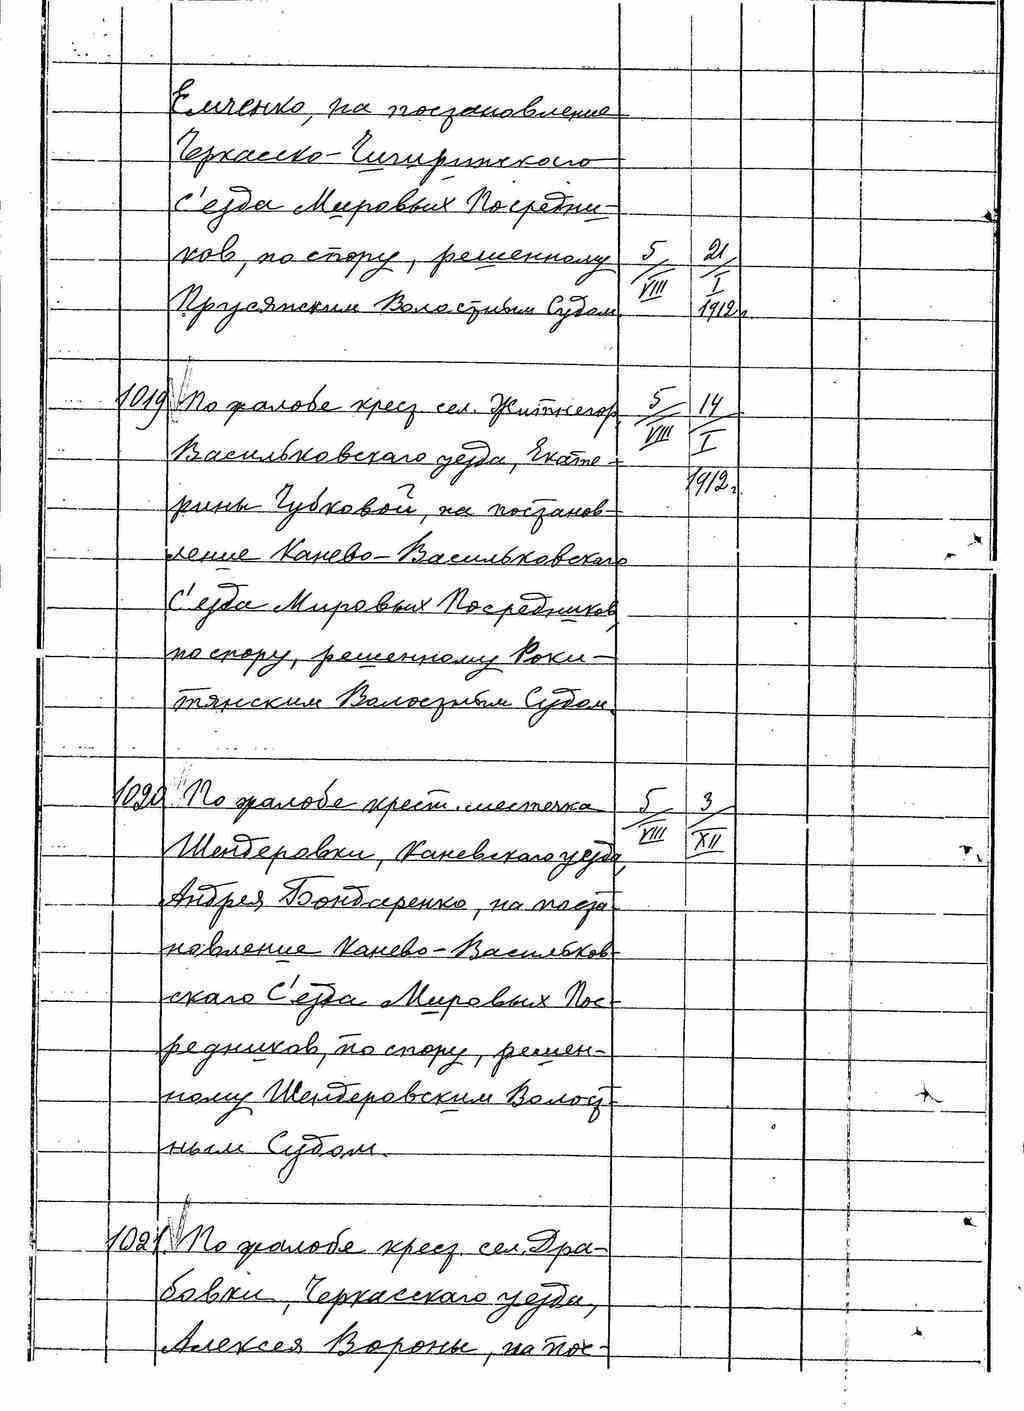 Емченко, на постановление
Черкасско-Чигиринского
С'езда Мировых Посредни-
ков, по спору, решенному 5/VIII 21/I
Прусянским Волостным Судом 1912г.
1019 По жалобе крест. сел. Житнегор, 5/VIII 14/I
Васильковскаго уезда, Екате- 1912г.
рины Чубковой, на постанов-
ление Канево-Васильковскаго
С'езда Мировых Посредников,
по спору, решенному Роки-
тянским Волостным Судом.
1020 По жалобе крест. местечка 5/VIII 3/XII
Шендеровки, Каневскаго уезда,
Андрея Бондаренко, на поста-
новление Канево-Васильков-
скаго С'езда Мировых Пос-
редников, по спору, решен-
ному Шендеровским Волост-
ным Судом.
1021 По жалобе крест. сел. Дра-
бовки, Черкасскаго уезда,
Алексея Вороны, на пос-